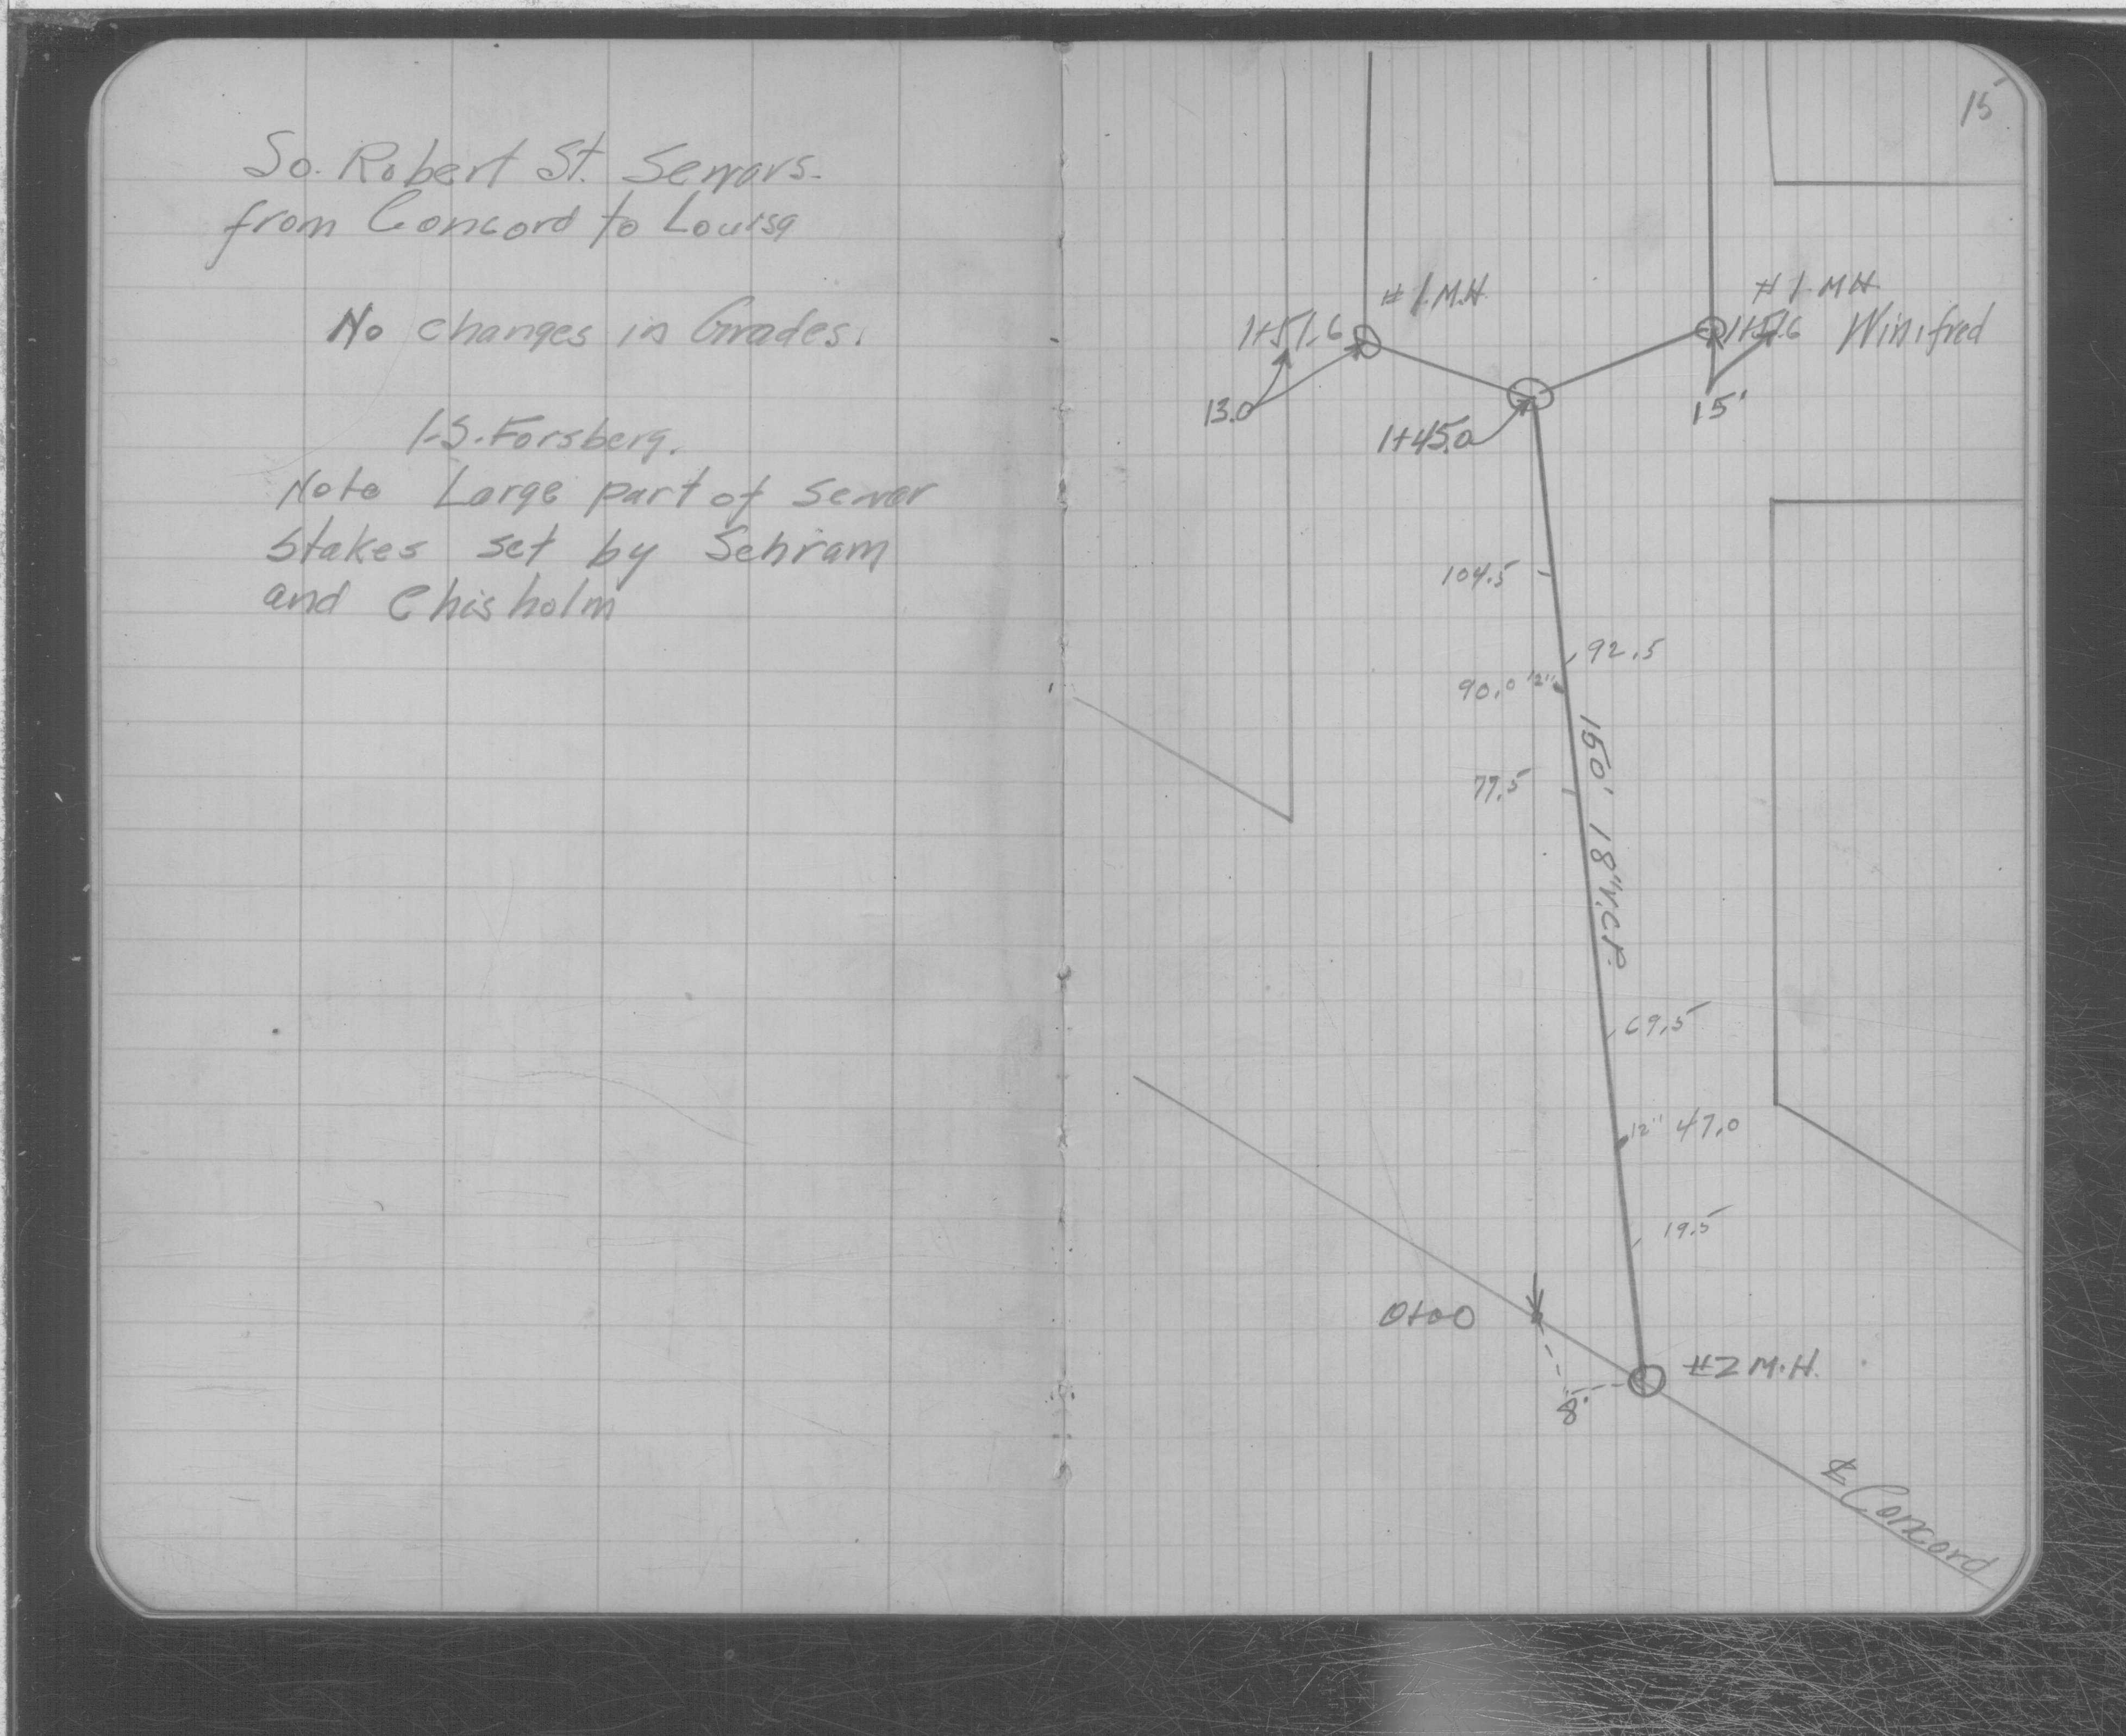 So. Robert St. Sewers.
from Concord to Louisa
No changes in Grades.
I.S. Forsberg.
Note Large part of sewer
stakes set by Schram
and Chisholm
15
# 1 M.H.
# 1 M H
1+51.6
1+51.6 Winifred
13.0
15'
1+45.0
104.5
92.5
90.0 12"
150' 18" V.C.P.
77.5
69.5
12" 47.0
19.5
0+00
#2 M.H.
8'
℄ Concord